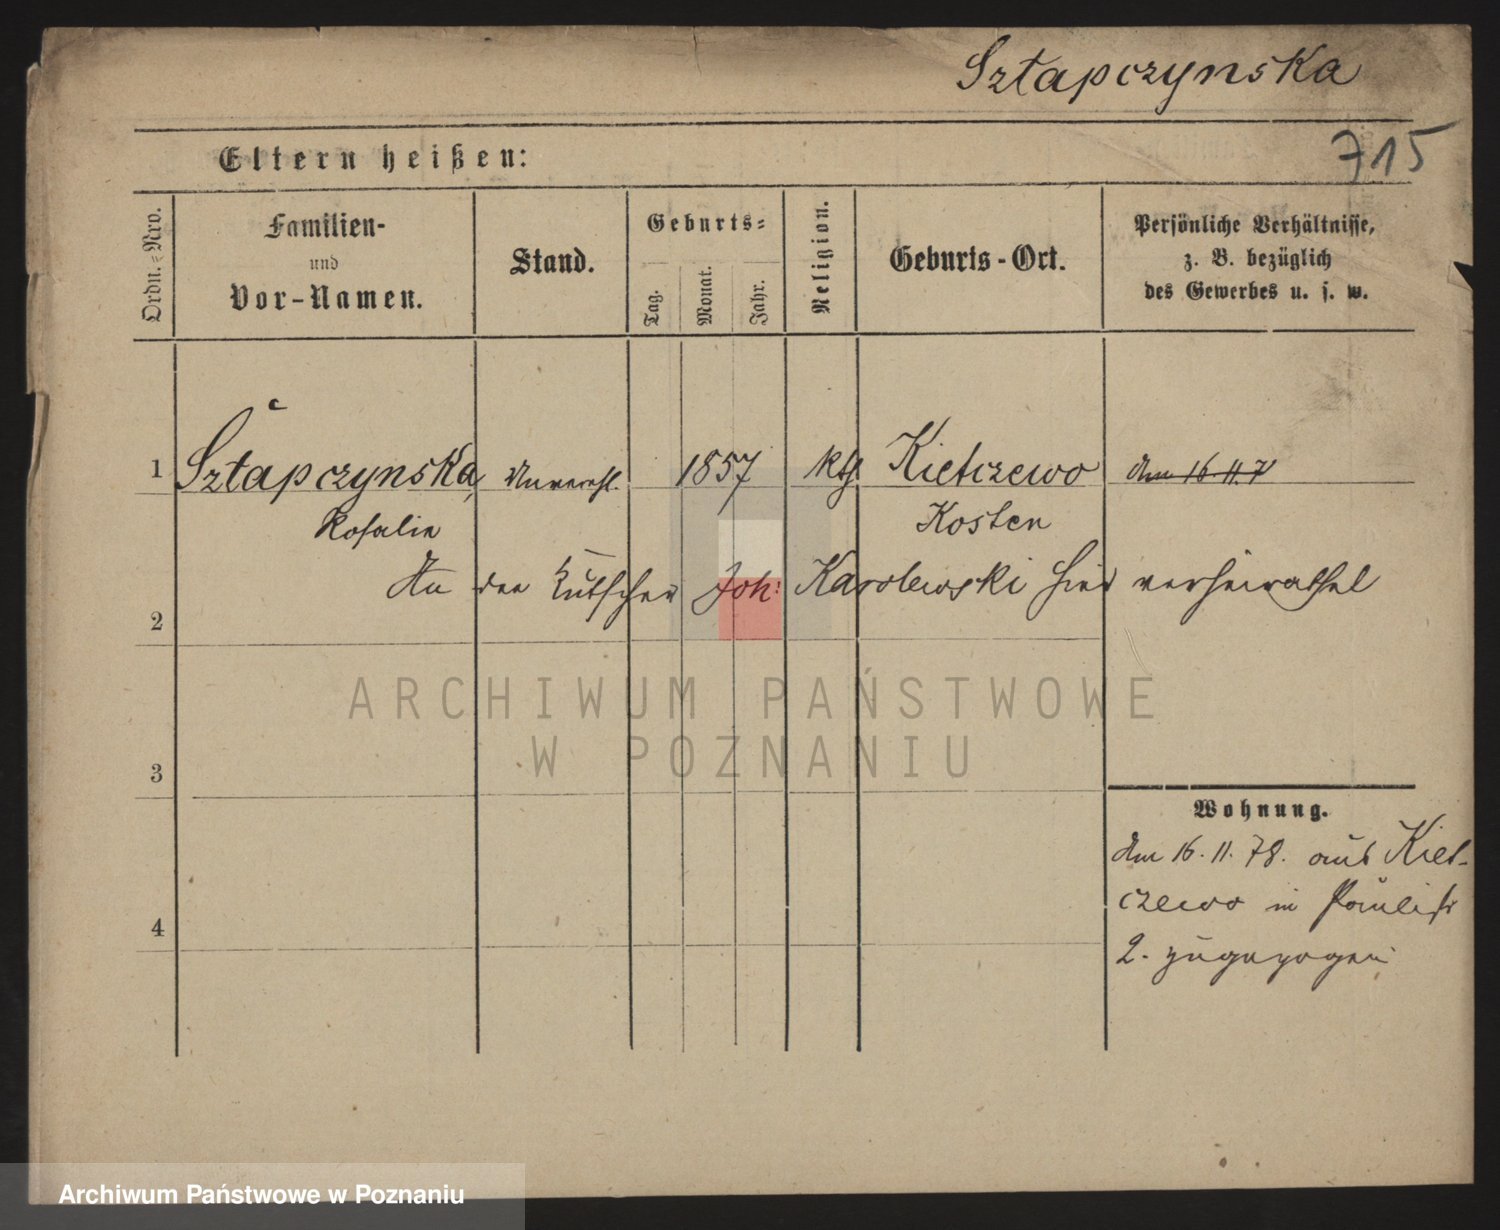 Sztapczynska
715
Eltern heißen:
Ordn.-Nro.
Familien-
und
Vor-Namen.
Stand.
Geburts-
Tag.
Monat.
Jahr.
Religion.
Geburts-Ort.
Persönliche Verhältnisse,
z. B. bezüglich
des Gewerbes u. s. w.
1 Sztapczynska, Unverehl. 1857 kth. Kietczewo den 16.11.7
Rosalie Kosten
An den Kutscher Joh: Karolewski hier verheirathet
2
ARCHIWUM PAŃSTWOWE
W POZNANIU
3
Wohnung.
den 16.11.78. aus Kiet-
czewo in Paulistr
4
2. zugezogen
Archiwum Państwowe w Poznaniu